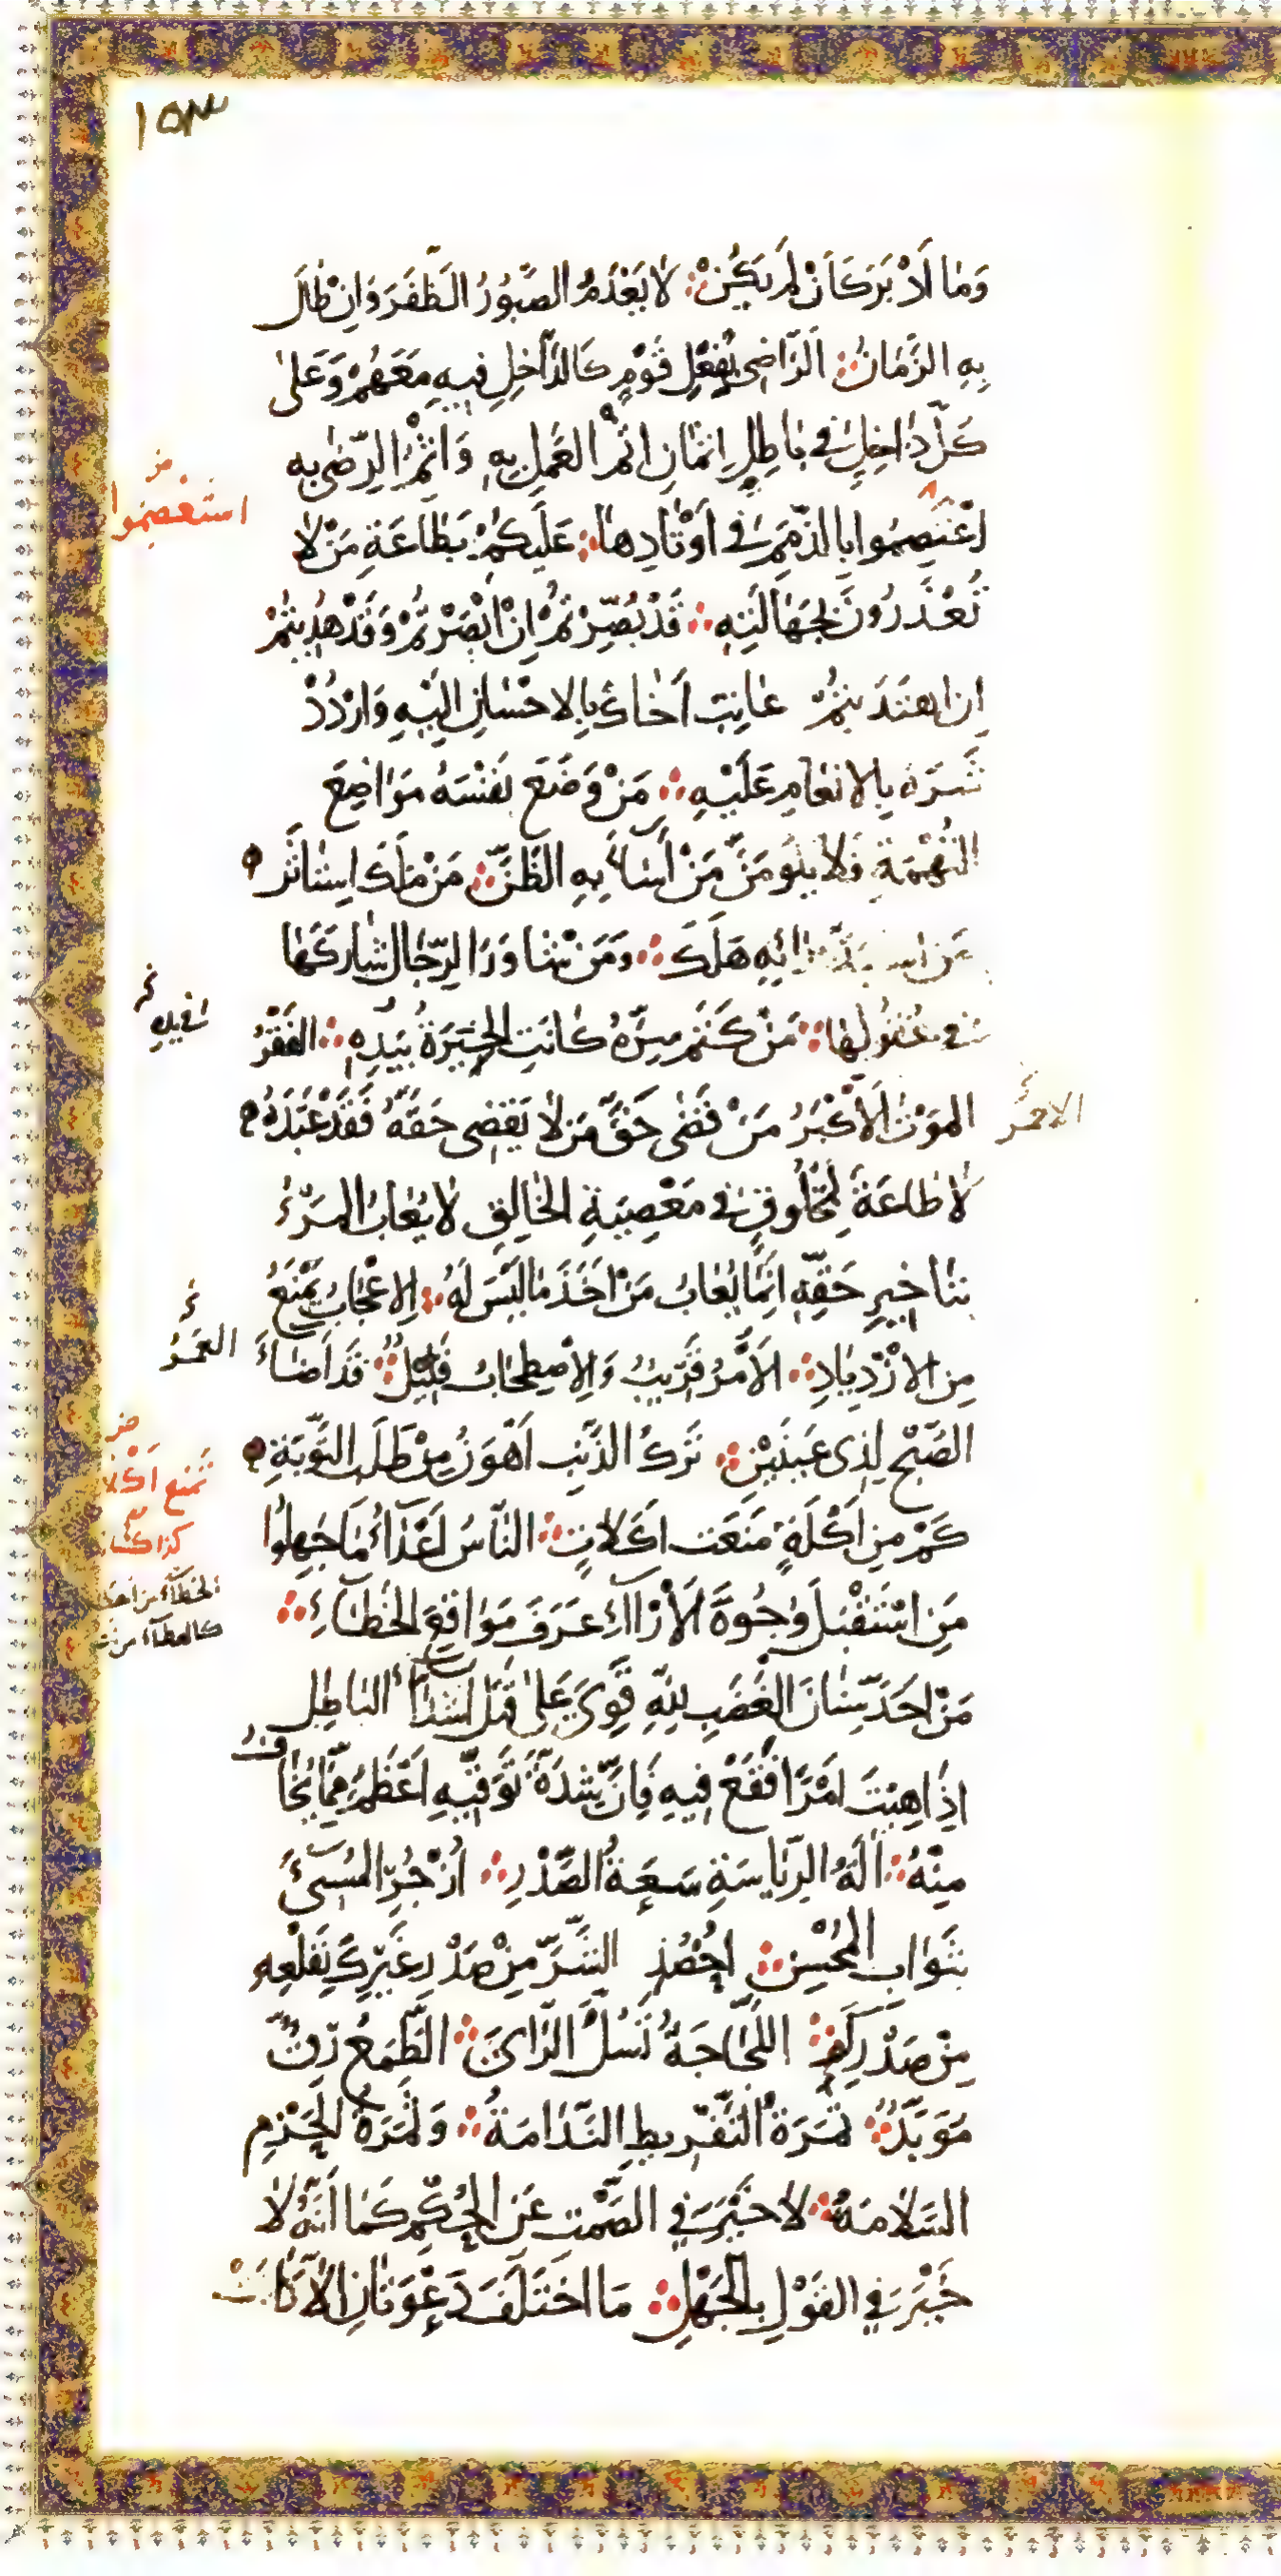 ١٥٣
وَمٰا اَدْبَرَ كَاَنْ لَمْ يَكُنْ لٰا يَعْدَمُ الصَّبُورُ الظَّفَرَ وَاِنْ طٰالَ
بِهِ الزَّمٰانُ الرَّاضِى بِفِعْلِ قَوْمٍ كَالدّٰاخِلِ فِيهِ مَعَهُمْ وَعَلىٰ
كُلِّ دٰاخِلٍ فى بٰاطِلٍ اِثْمٰانِ اِثْمُ العَمَلِ بِهِ وَاِثْمُ الرِّضٰى بِهِ
استَعْصِمُوا
اعْتَصِمُوا بِالذِّمَمِ فى اَوْتٰادِهٰا عَلَيْكُمْ بِطٰاعَةِ مَنْ لٰا
تُعْذَرُونَ بِجَهٰالَتِهِ قَدْ بُصِّرْتُمْ اِنْ اَبْصَرْتُمْ وَقَدْ هُدِيتُمْ
اِنِ اهْتَدَيتُمْ عٰاتِبْ اَخٰاكَ بِالاحْسٰانِ اِلَيْهِ وَارْدُدْ
شَرَّهُ بِالانعٰامِ عَلَيْهِ مَنْ وَضَعَ نَفْسَهُ مَوٰاضِعَ
التُّهْمَةِ فَلا يَلُومَنَّ مَنْ اَسٰاءَ بِهِ الظَّنَّ مَنْ مَلَكَ اسْتَاثَرَ
مَنِ اسْتَبَدَّ بِرَايِهِ هَلَكَ وَمَنْ شٰاوَرَ الرِّجٰالَ شٰارَكَهٰا
فى عُقُولِهٰا مَنْ كَتَمَ سِرَّهُ كٰانَتِ الخِيَرَةُ بِيَدِهِ الفَقْرُ
فى يدِهِ
المَوْتُ الاَكْبَرُ مَنْ قَضٰى حَقَّ مَنْ لا يَقضِى حَقَّهُ فَقَدْ عَبَدَهُ
الاحمَرُ
لٰا طٰاعَةَ لِمَخْلُوقٍ فى مَعْصِيَةِ الخٰالِقِ لا يُعٰابُ المَرْءُ
بتٰاخِيرِ حَقِّهِ اِنَّمٰا يُعٰابُ مَنْ اَخَذَ مٰا لَيْسَ لَهُ الاِعْجٰابُ يَمْنَعُ
مِنَ الازْدِيٰادِ الاَمْرُ قَرِيبٌ وَالاِصْطِحٰابُ قَلِيلٌ قَد اَضٰاءَ
العُمْرُ
الصُّبْحُ لِذِى عَيْنَيْنِ تَرْكُ الذَّنْبِ اَهْوَنُ مِنْ طَلَبِ التَّوبَةِ
كَمْ مِن اَكْلَةٍ مَنَعَت اَكَلاتٍ النّٰاسُ اَعْدٰاءُ مٰا جَهِلُوا
تَمنَع
مَنِ اسْتَقْبَلَ وُجُوهَ الاٰرٰاءِ عَرَفَ مَوٰاقِعَ الخَطٰاءِ
مَنْ اَحَدَّ سِنٰانَ الغَضَبِ لِلّٰهِ قَوِىَ عَلىٰ قَتْلِ اَشِدّٰاءِ البٰاطِلِ
اِذٰا هِبْتَ اَمْرًا فَقَعْ فِيهِ فَاِنَّ شِدَّةَ تَوَقِّيهِ اَعْظَمُ مِمّٰا تَخٰافُ
مِنْهُ اٰلَةُ الرِّيٰاسَةِ سَعَةُ الصَّدْرِ اُزْجُرِ المُسِىءَ
بِثَوٰابِ المُحْسِنِ اُحْصُدِ الشَّرَّ مِنْ صَدْرِ غَيْرِكَ بِقَلْعِهِ
مِنْ صَدْرِكَ اللَّجٰاجَةُ تَسُلُّ الرّٰاىَ الطَّمَعُ رِقٌّ
مُؤَبَّدٌ ثَمَرَةُ التَّفْرِيطِ النَّدٰامَةُ وَثَمَرَةُ الحَزْمِ
السَّلٰامَةُ لا خَيْرَ فِي الصَّمْتِ عَنِ الحُكْمِ كَمٰا اَنَّهُ لٰا
خَيْرَ فِي القَوْلِ بِالجَهْلِ مَا اخْتَلَفَ دَعْوَتٰانِ اِلّٰا كٰانَتْ